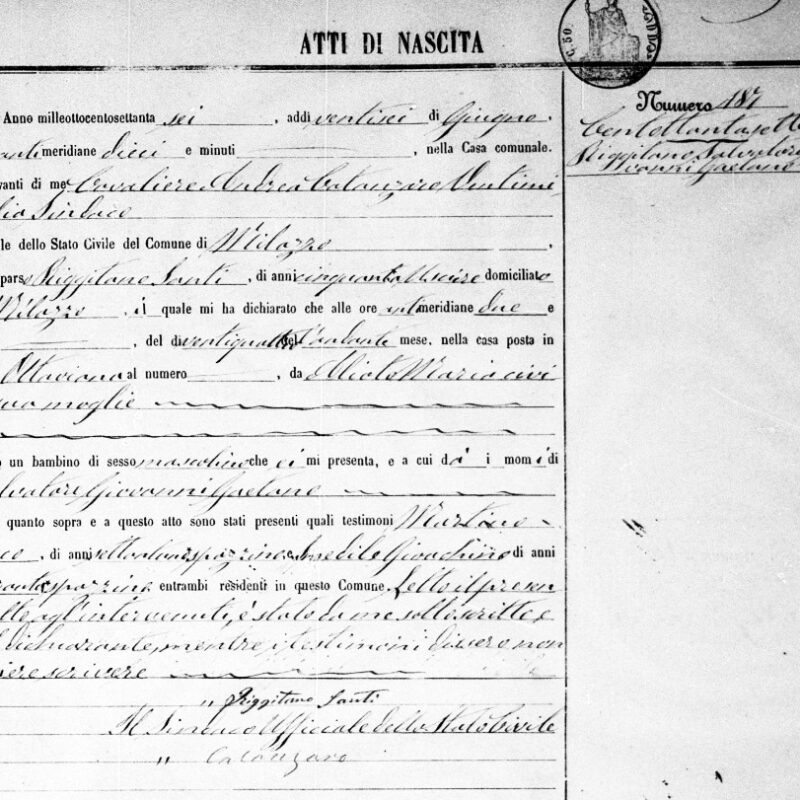 ATTI DI NASCITA
Numero 187
Centottantasette
Riggitano Salvatore
Giovanni Gaetano
Anno milleottocentosettanta sei, addì ventisei di Giugno,
antimeridiane dieci e minuti, nella Casa comunale.
vanti di me Cavaliere Andrea Catanzaro Ventimi
glia Sindaco
le dello Stato Civile del Comune di Milazzo,
parso Riggitano Santi, di anni cinquanta Usciere domiciliato
Milazzo, il quale mi ha dichiarato che alle ore antimeridiane due e
, del dì ventiquattro del l'andante mese, nella casa posta in
Ottaviana al numero, da Maria civi
sua moglie
un bambino di sesso mascolino che ei mi presenta, e a cui dà i nomi di
lvatore Giovanni Gaetano
quanto sopra e a questo atto sono stati presenti quali testimoni
, di anni spazzino e Gioachino di anni
spazzino entrambi residenti in questo Comune. Letto il presen
te agl'intervenuti, è stato da me sottoscritto e
dichiarante, mentre i testimoni dissero non
scrivere
" Riggitano Santi
Il Sindaco Ufficiale dello Stato Civile
" Catanzaro